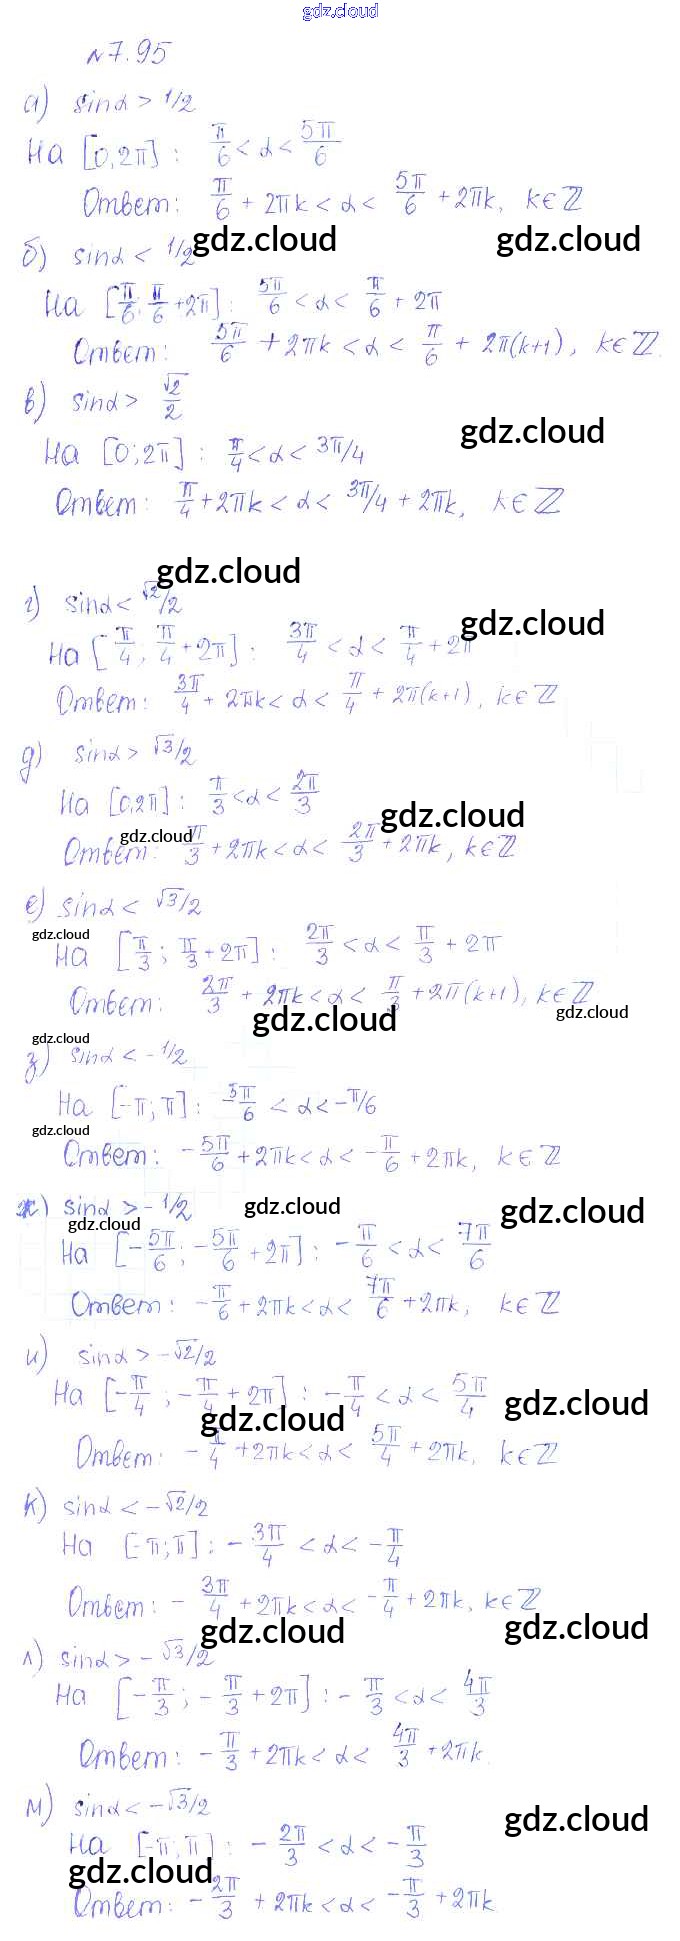 gdz.cloud
№7.95
а) sinα > 1/2
На [0,2π] : π/6 < α < 5π/6
Ответ: π/6 + 2πk < α < 5π/6 + 2πk, k∈ℤ
gdz.cloud gdz.cloud
б) sinα < 1/2
На [π/6; π/6 + 2π] : 5π/6 < α < π/6 + 2π
Ответ: 5π/6 + 2πk < α < π/6 + 2π(k+1), k∈ℤ.
в) sinα > √2/2
gdz.cloud
На [0;2π] : π/4 < α < 3π/4
Ответ: π/4 + 2πk < α < 3π/4 + 2πk, k∈ℤ
gdz.cloud
г) sinα < √2/2
gdz.cloud
На [π/4; π/4 + 2π] : 3π/4 < α < π/4 + 2π
Ответ: 3π/4 + 2πk < α < π/4 + 2π(k+1), k∈ℤ
д) sinα > √3/2
На [0,2π] : π/3 < α < 2π/3
gdz.cloud
gdz.cloud
Ответ: π/3 + 2πk < α < 2π/3 + 2πk, k∈ℤ
е) sinα < √3/2
gdz.cloud
На [π/3; π/3 + 2π] : 2π/3 < α < π/3 + 2π
Ответ: 2π/3 + 2πk < α < π/3 + 2π(k+1), k∈ℤ
gdz.cloud gdz.cloud
gdz.cloud
з) sinα < -1/2
На [-π; π] : -5π/6 < α < -π/6
gdz.cloud
Ответ: -5π/6 + 2πk < α < -π/6 + 2πk, k∈ℤ
ж) sinα > -1/2
gdz.cloud gdz.cloud gdz.cloud
На [-5π/6; -5π/6 + 2π] : -π/6 < α < 7π/6
Ответ: -π/6 + 2πk < α < 7π/6 + 2πk, k∈ℤ
и) sinα > -√2/2
На [-π/4; -π/4 + 2π] : -π/4 < α < 5π/4
gdz.cloud gdz.cloud
Ответ: -π/4 + 2πk < α < 5π/4 + 2πk, k∈ℤ
к) sinα < -√2/2
На [-π; π] : -3π/4 < α < -π/4
Ответ: -3π/4 + 2πk < α < -π/4 + 2πk, k∈ℤ
gdz.cloud gdz.cloud
л) sinα > -√3/2
На [-π/3; -π/3 + 2π] : -π/3 < α < 4π/3
Ответ: -π/3 + 2πk < α < 4π/3 + 2πk.
м) sinα < -√3/2
gdz.cloud
На [-π; π] : -2π/3 < α < -π/3
gdz.cloud
Ответ: -2π/3 + 2πk < α < -π/3 + 2πk.